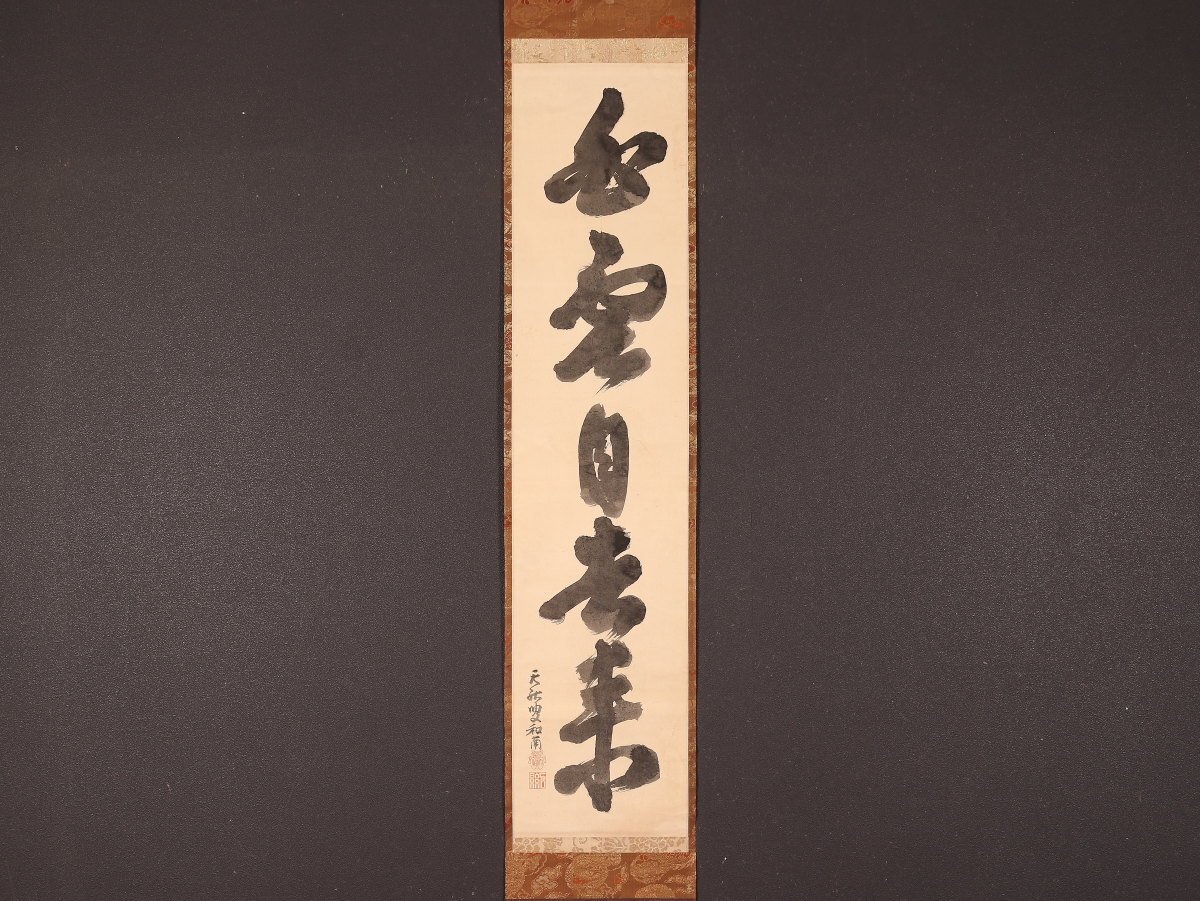 白雲自去来
天叟和南